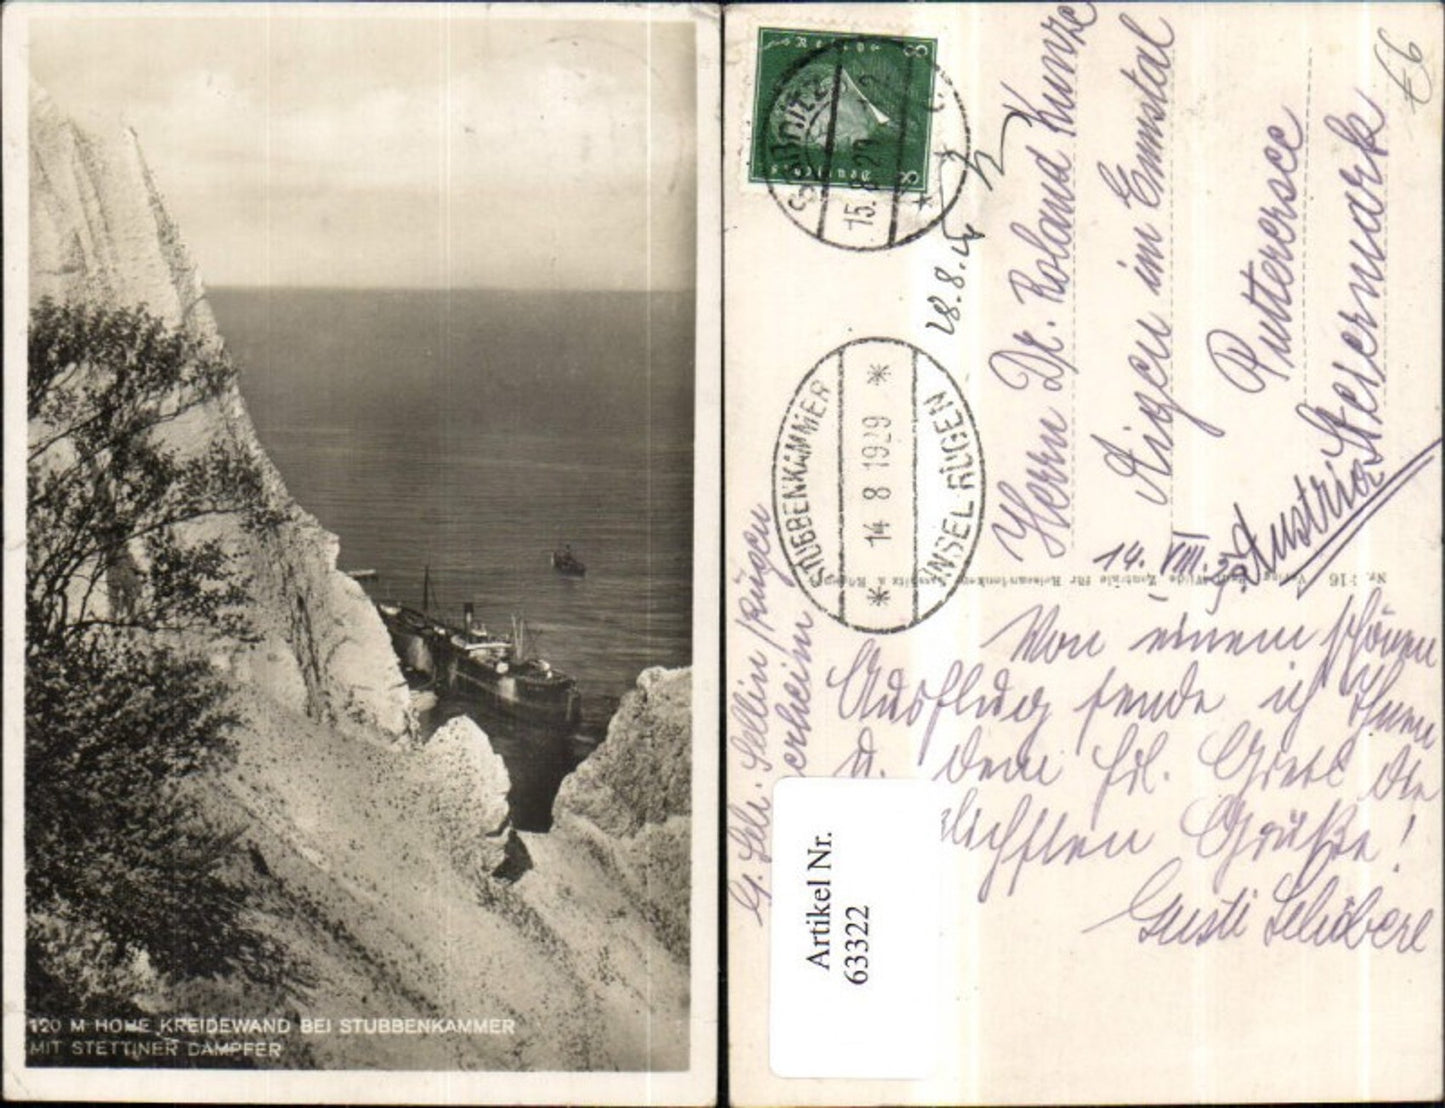 120 M HOHE KREIDEWAND BEI STUBBENKAMMER
MIT STETTINER DAMPFER
Deutsches
8 8
SASSNITZ
15.8.29
28.8.
STUBBENKAMMER
14 8 1929
INSEL RÜGEN
€6
Herrn Dr. Roland Kunze
Aigen im Ennstal
Putterersee
Steiermark
Austria
Nr. 116
14. VIII. 29.
Von einem schönen
Ausflug sende ich Ihnen
u. dem Frl. Grete die
Grüße!
Gusti Schöberl
Sellin/Rügen
Artikel Nr.
63322